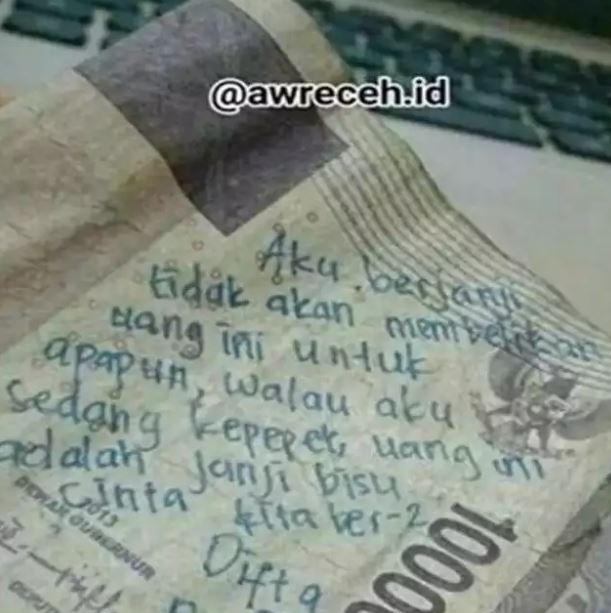 @awreceh.id
Aku berjanji
tidak akan membelikan
uang ini untuk
apapun, walau aku
sedang kepepet, uang ini
adalah janji bisu
cinta kita ber-2
Difta
2013
DEWAN GUBERNUR
DEPUTI
1000